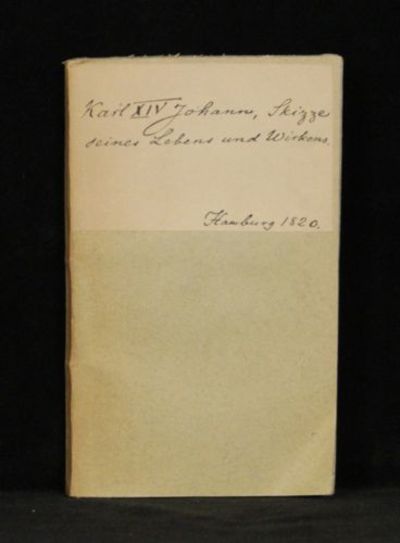 Karl XIV Johann, Skizze
seines Lebens und Wirkens.
Hamburg 1820.